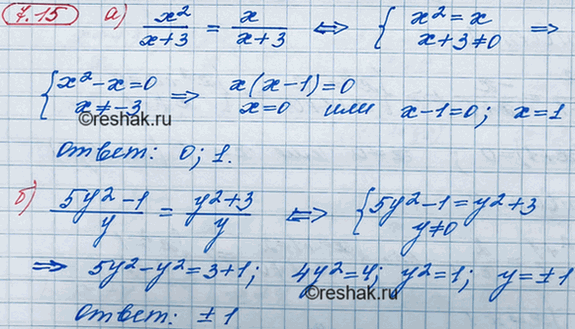 7.15 а) x²/(x+3) = x/(x+3) ⇔ { x² = x ⇒
x+3≠0
{ x²-x=0 ⇒ x(x-1)=0
x≠-3 x=0 или x-1=0; x=1
©reshak.ru
Ответ: 0; 1.
б) (5y²-1)/y = (y²+3)/y ⇔ { 5y²-1=y²+3
y≠0
⇒ 5y²-y²=3+1; 4y²=4; y²=1; y=±1
©reshak.ru
Ответ: ±1